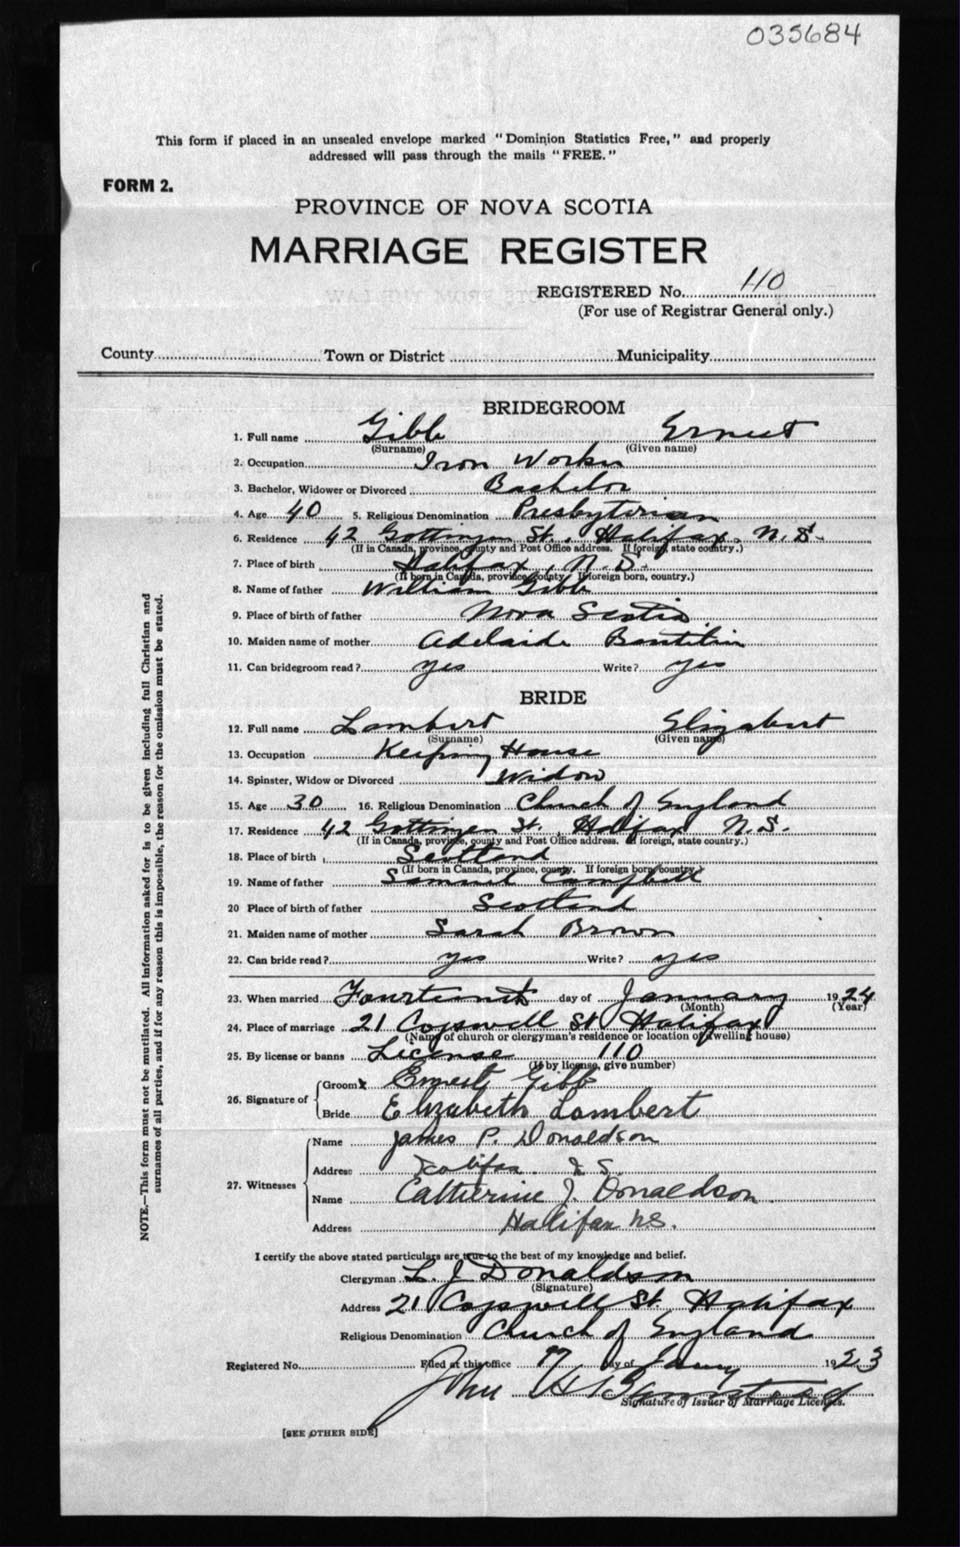 035684
This form if placed in an unsealed envelope marked "Dominion Statistics Free," and properly
addressed will pass through the mails "FREE."
FORM 2.
PROVINCE OF NOVA SCOTIA
MARRIAGE REGISTER
REGISTERED No. 110
(For use of Registrar General only.)
County Town or District Municipality
BRIDEGROOM
1. Full name Gibb Ernest
(Surname) (Given name)
2. Occupation Iron Worker
3. Bachelor, Widower or Divorced Bachelor
4. Age 40 5. Religious Denomination Presbyterian
6. Residence 42 Gottingen St. Halifax. N.S.
(If in Canada, province, county and Post Office address. If foreign, state country.)
7. Place of birth Halifax, N.S.
(If born in Canada, province, county. If foreign born, country.)
8. Name of father William Gibb
9. Place of birth of father Nova Scotia
10. Maiden name of mother Adelaide
11. Can bridegroom read? yes Write? yes
BRIDE
12. Full name Lambert Elizabeth
(Surname) (Given name)
13. Occupation Keeping House
14. Spinster, Widow or Divorced Widow
15. Age 30 16. Religious Denomination Church of England
17. Residence 42 Gottingen St. Halifax N.S.
(If in Canada, province, county and Post Office address. If foreign, state country.)
18. Place of birth Scotland
(If born in Canada, province, county. If foreign born, country.)
19. Name of father Samuel Campbell
20 Place of birth of father Scotland
21. Maiden name of mother Sarah Brown
22. Can bride read? yes Write? yes
23. When married Fourteenth day of January 1924
(Month) (Year)
24. Place of marriage 21 Cogswell St Halifax
(Name of church or clergyman's residence or location of dwelling house)
25. By license or banns License 110
(If by license, give number)
26. Signature of Groom x Ernest Gibb
Bride Elizabeth Lambert
27. Witnesses Name James P. Donaldson
Address Halifax. N.S.
Name Catherine J. Donaldson
Address Halifax N.S.
I certify the above stated particulars are true to the best of my knowledge and belief.
Clergyman L. J. Donaldson
(Signature)
Address 21 Cogswell St. Halifax
Religious Denomination Church of England
Registered No. Filed at this office 17 day of Jany 1923
John H
Signature of Issuer of Marriage Licenses.
[SEE OTHER SIDE]
NOTE.—This form must not be mutilated. All information asked for is to be given including full Christian and
surnames of all parties, and if for any reason this is impossible, the reason for the omission must be stated.